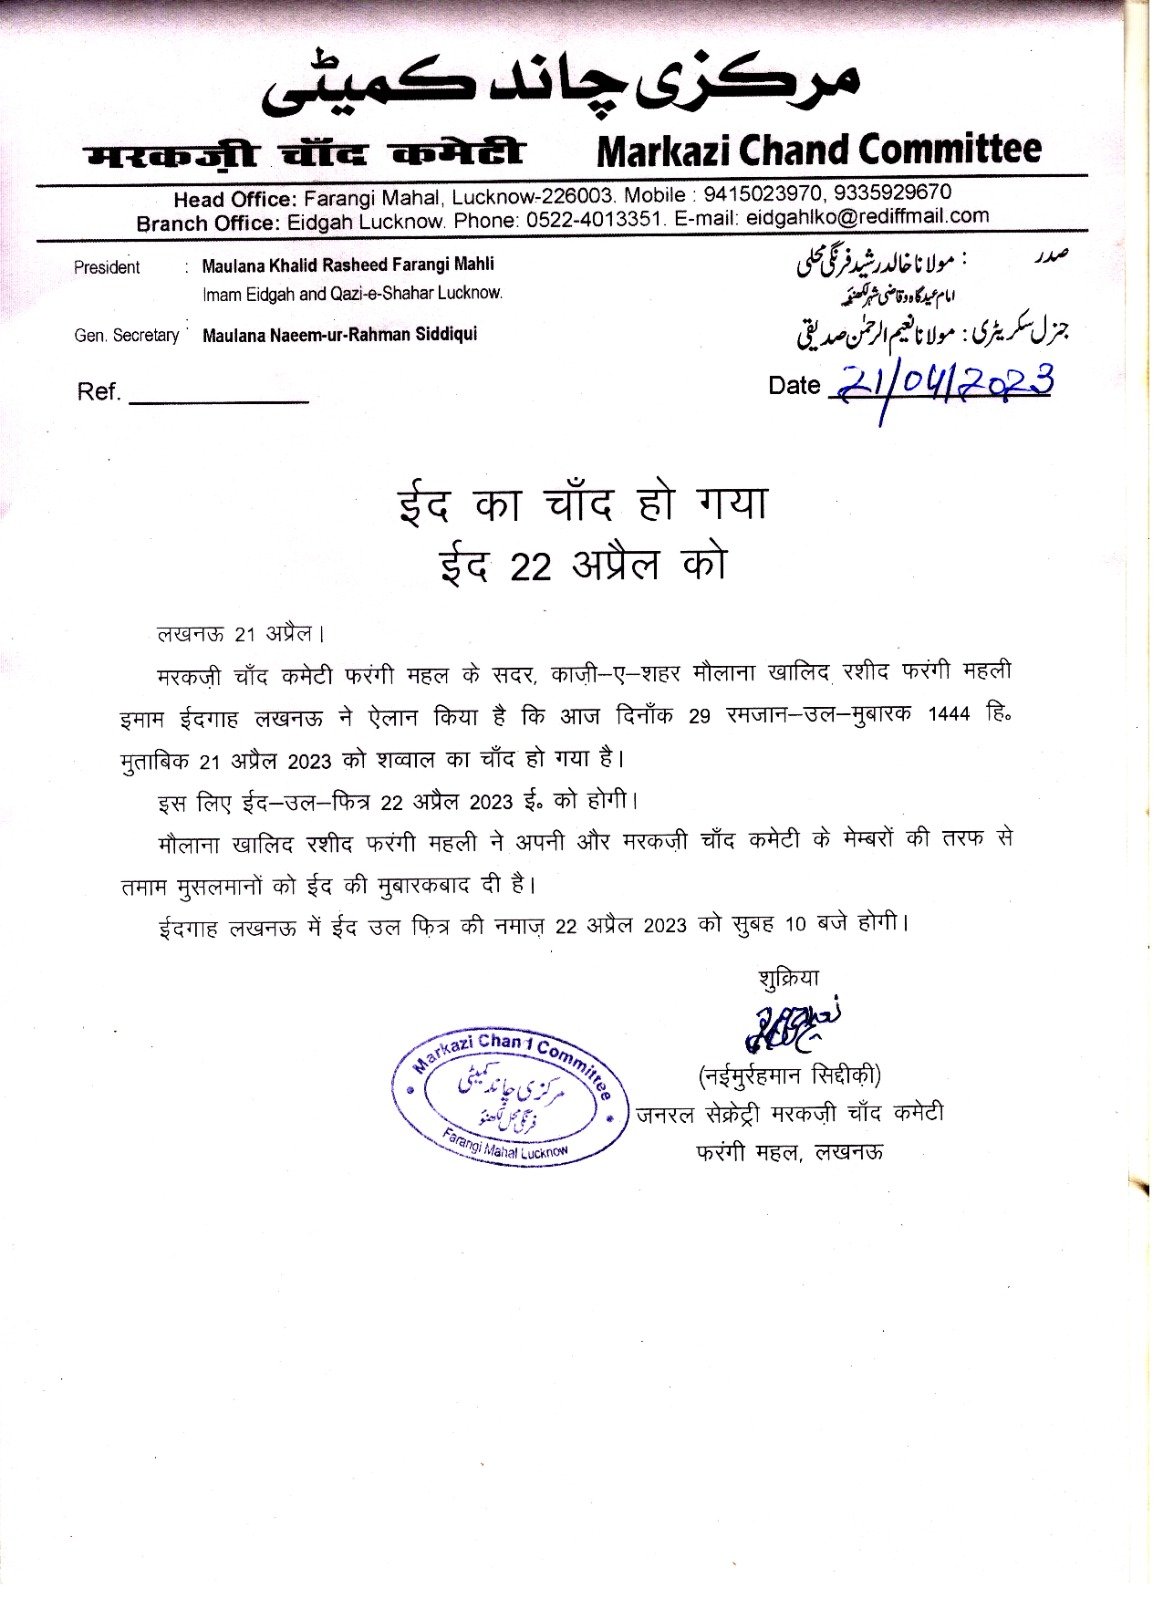 مرکزی چاند کمیٹی
मरकज़ी चाँद कमेटी Markazi Chand Committee
Head Office: Farangi Mahal, Lucknow-226003. Mobile : 9415023970, 9335929670
Branch Office: Eidgah Lucknow. Phone: 0522-4013351. E-mail: eidgahlko@rediffmail.com
President : Maulana Khalid Rasheed Farangi Mahli صدر : مولانا خالد رشید فرنگی محلی
Imam Eidgah and Qazi-e-Shahar Lucknow. امام عیدگاہ و قاضی شہر لکھنؤ
Gen. Secretary : Maulana Naeem-ur-Rahman Siddiqui جنرل سکریٹری : مولانا نعیم الرحمٰن صدیقی
Ref. Date 21/04/2023
ईद का चाँद हो गया
ईद 22 अप्रैल को
लखनऊ 21 अप्रैल।
मरकज़ी चाँद कमेटी फरंगी महल के सदर, काज़ी–ए–शहर मौलाना खालिद रशीद फरंगी महली
इमाम ईदगाह लखनऊ ने ऐलान किया है कि आज दिनाँक 29 रमजान–उल–मुबारक 1444 हि॰
मुताबिक 21 अप्रैल 2023 को शव्वाल का चाँद हो गया है।
इस लिए ईद–उल–फित्र 22 अप्रैल 2023 ई॰ को होगी।
मौलाना खालिद रशीद फरंगी महली ने अपनी और मरकज़ी चाँद कमेटी के मेम्बरों की तरफ से
तमाम मुसलमानों को ईद की मुबारकबाद दी है।
ईदगाह लखनऊ में ईद उल फित्र की नमाज़ 22 अप्रैल 2023 को सुबह 10 बजे होगी।
शुक्रिया
(नईमुर्रहमान सिद्दीक़ी)
जनरल सेक्रेट्री मरकज़ी चाँद कमेटी
फरंगी महल, लखनऊ
Markazi Chand Committee
مرکزی چاند کمیٹی
فرنگی محل لکھنؤ
Farangi Mahal Lucknow